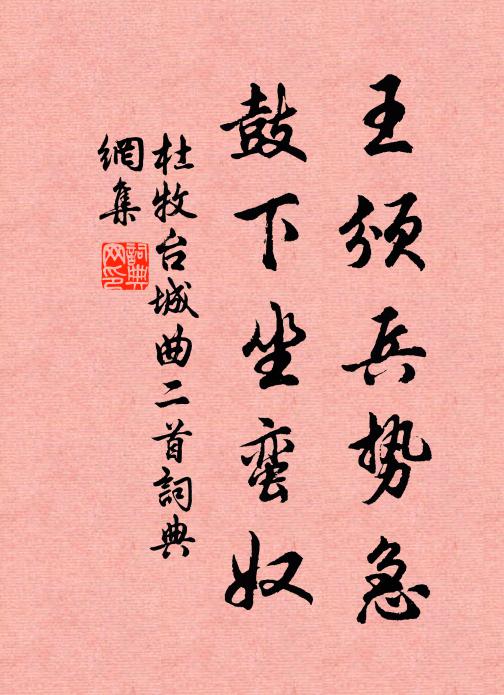 王颁兵势急
鼓下坐蛮奴
杜牧台城曲二首詞典
網集
詞典网印